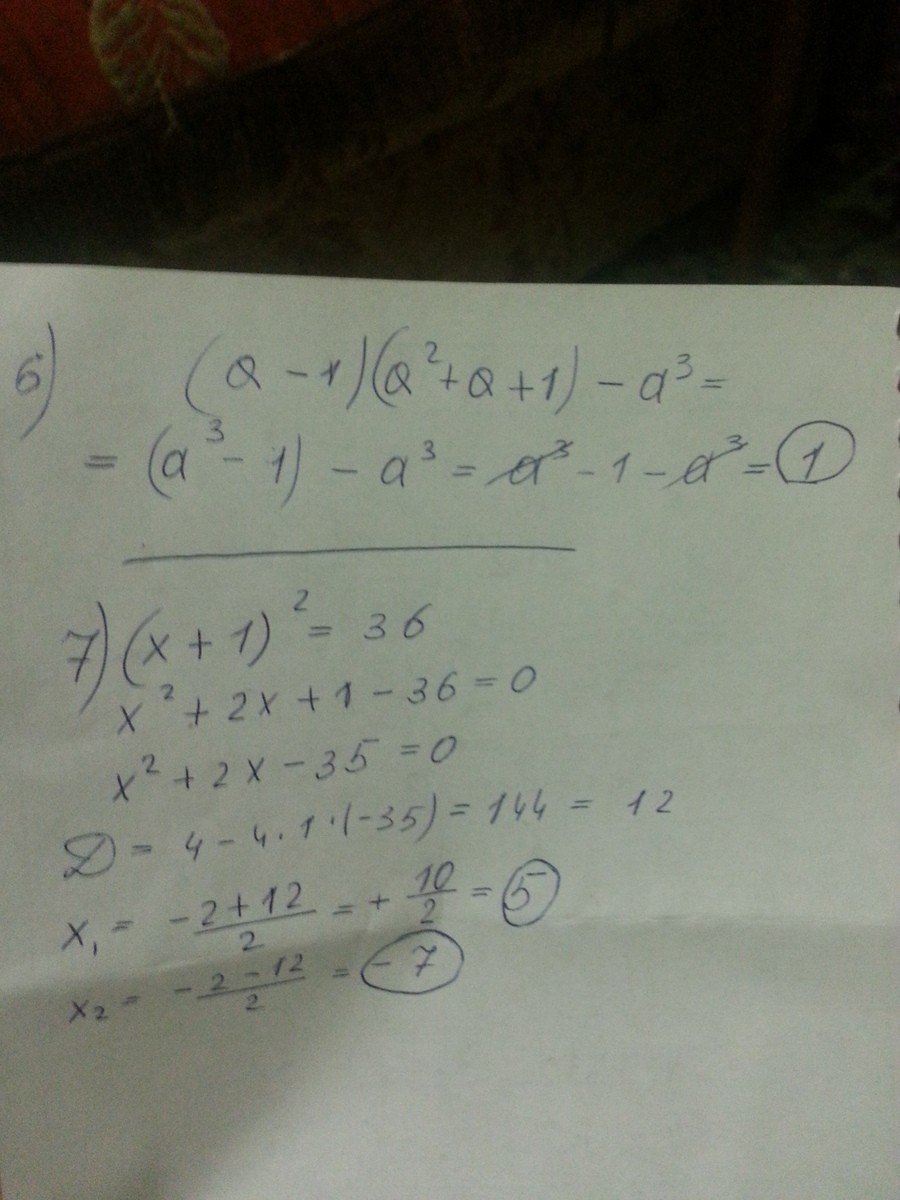 6) (a - 1)(a² + a + 1) - a³ =
= (a³ - 1) - a³ = a³ - 1 - a³ = 1
7) (x + 1)² = 36
x² + 2x + 1 - 36 = 0
x² + 2x - 35 = 0
D = 4 - 4 · 1 · (-35) = 144 = 12
x₁ = -2 + 12 / 2 = + 10 / 2 = 5
x₂ = -2 - 12 / 2 = -7